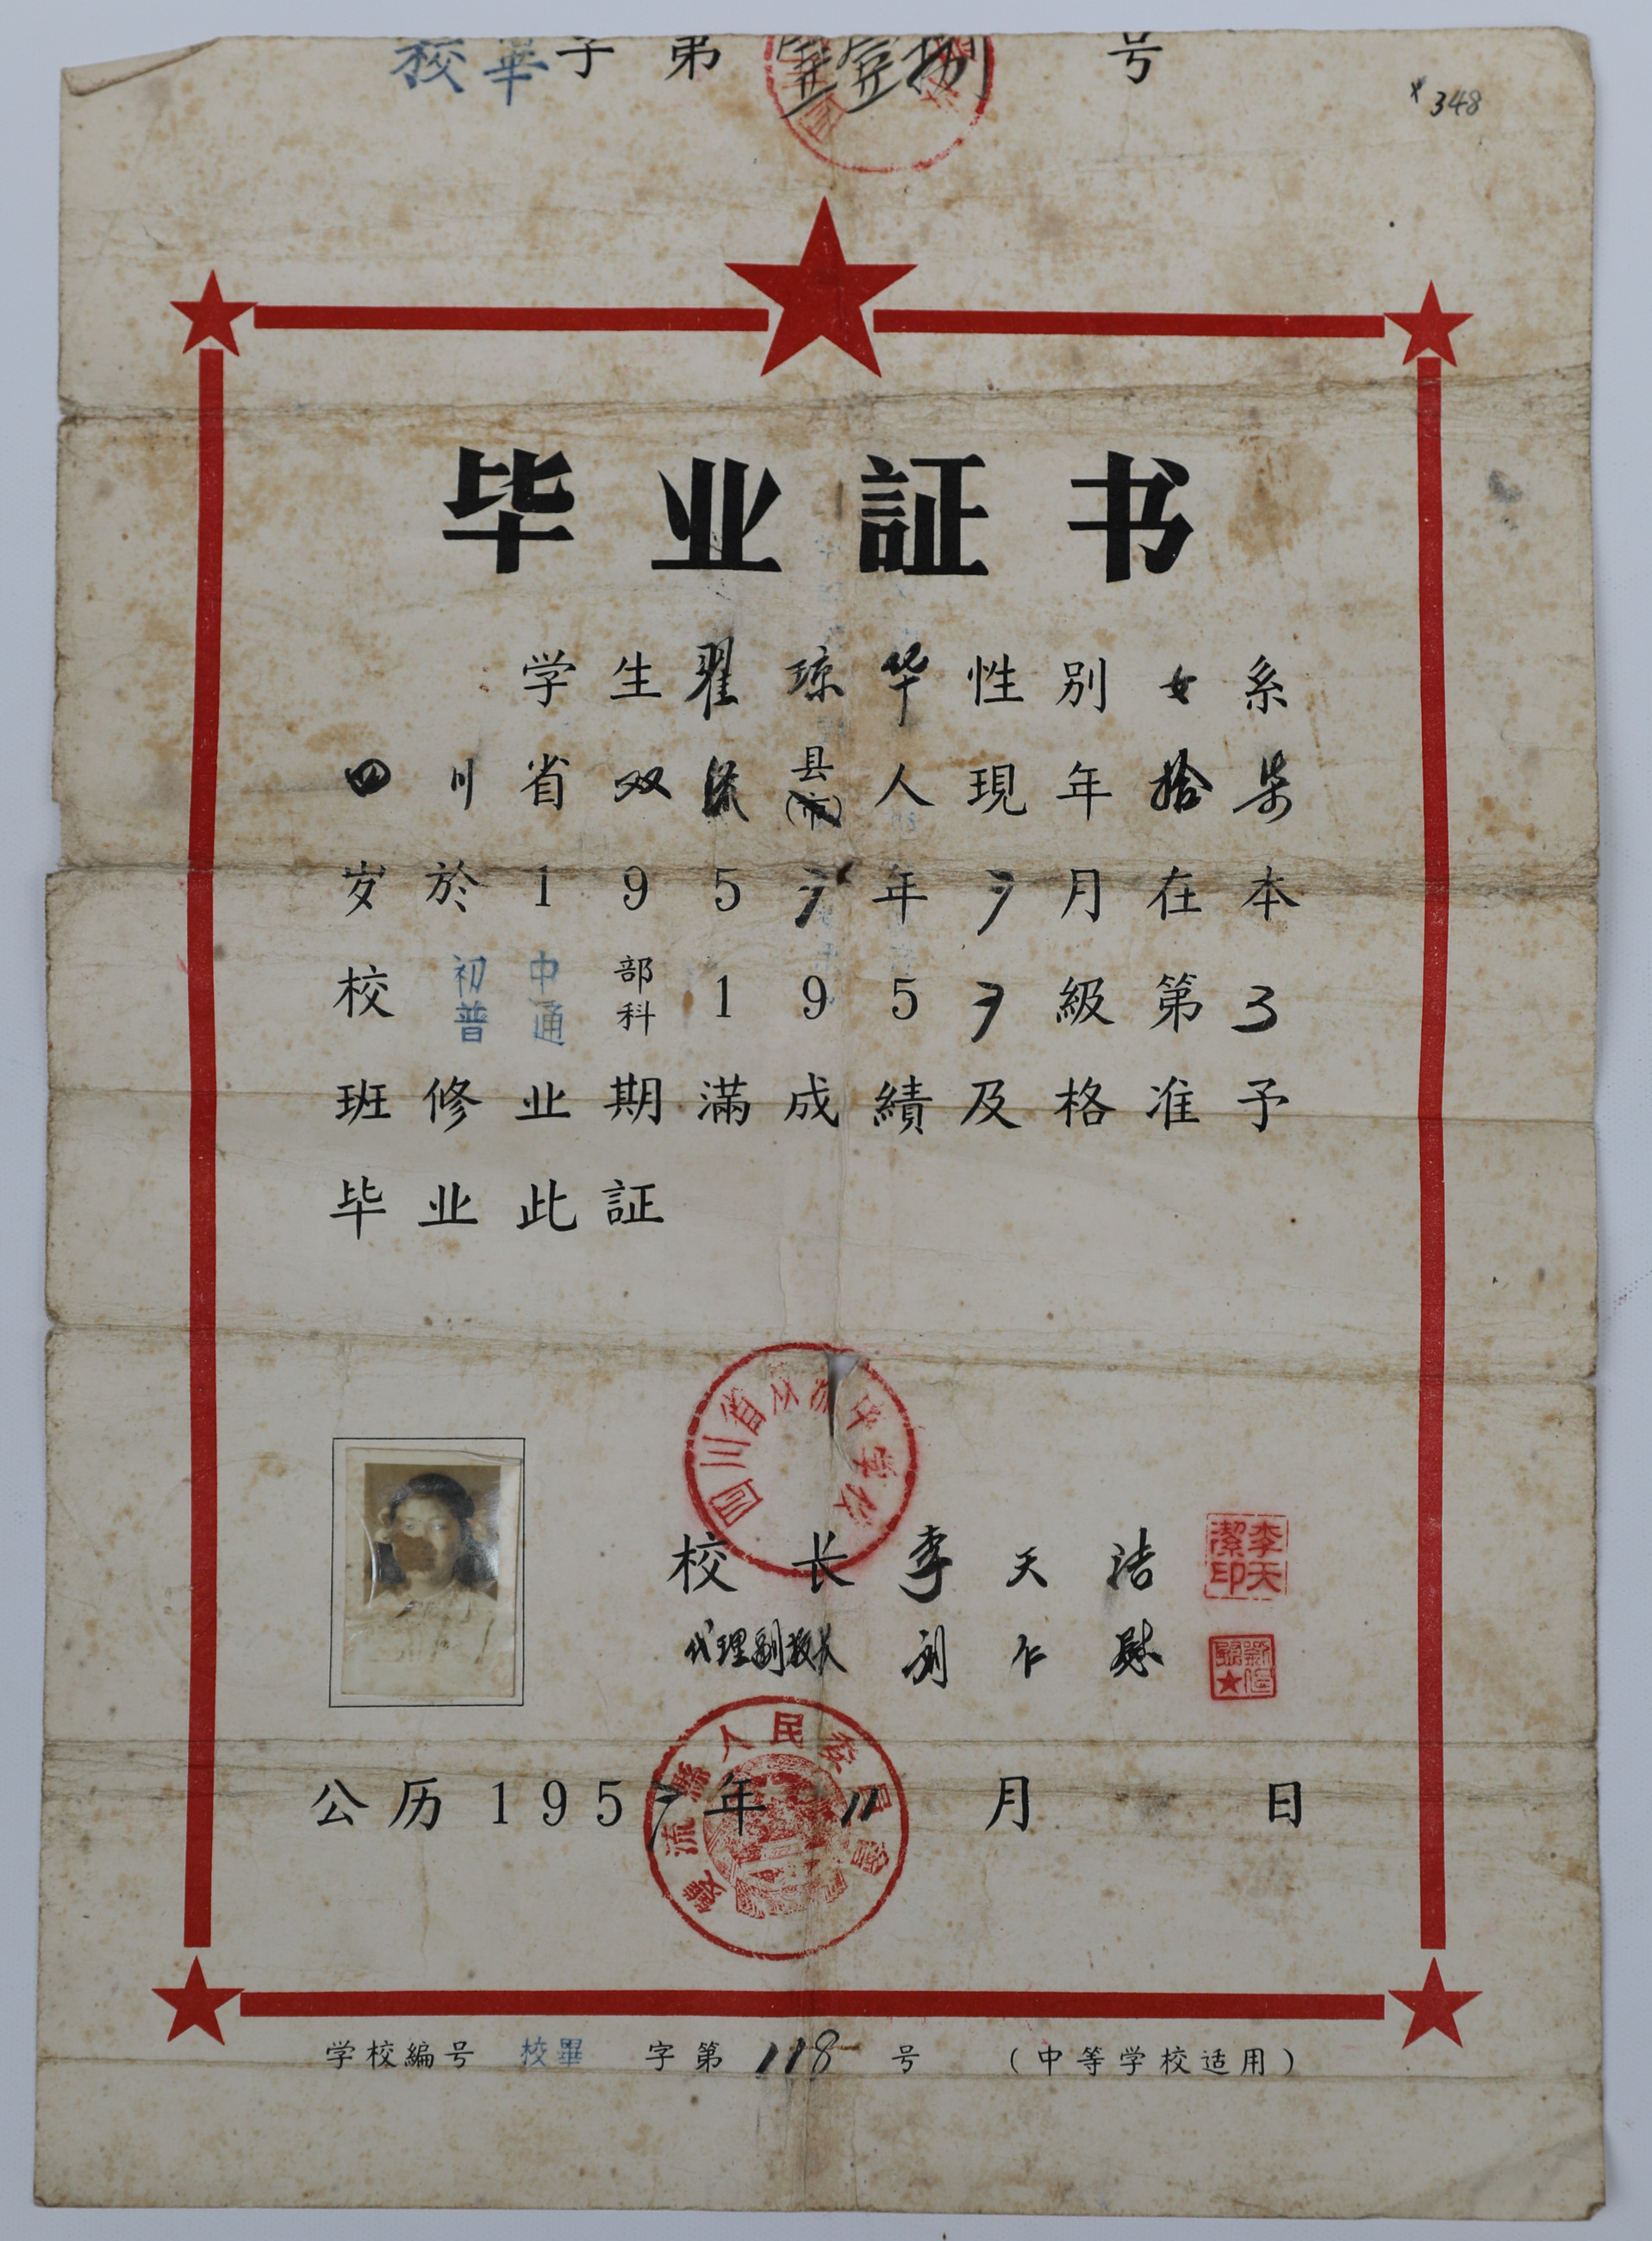 校畢字第壹壹捌号
348
毕业証书
学生翟琼华性别女系
四川省双流县(市)人現年拾柒
岁於1957年7月在本
校初中部1957級第3
普通科
班修业期滿成績及格准予
毕业此証
四川省双流中学校
校长李天洁
李天潔印
代理副校长刘仁慰
公历1957年11月 日
雙流縣人民委員會
学校編号 校畢 字第118号 (中等学校适用)